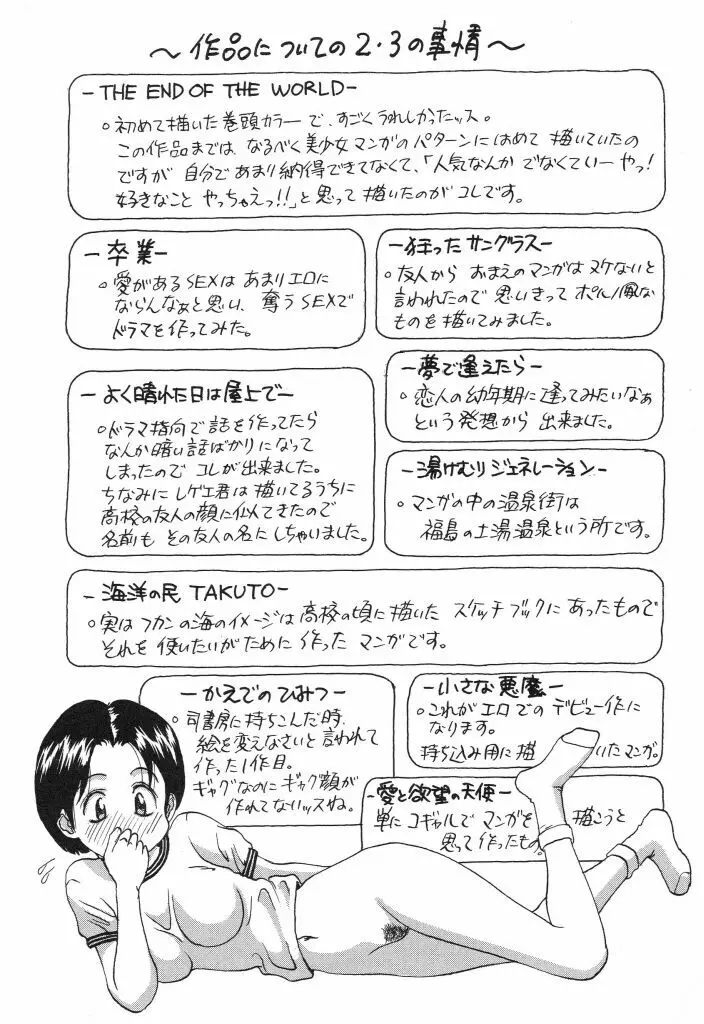 ～作品についての2・3の事情～
-THE END OF THE WORLD-
○初めて描いた巻頭カラーで、すごくうれしかったッス。
この作品までは、なるべく美少女マンガのパターンにはめて描いていたの
ですが自分であまり納得できてなくて、「人気なんかでなくていーやっ!
好きなことやっちゃえっ!!」と思って描いたのがコレです。
-卒業-
○愛があるSEXはあまりエロに
ならんなぁと思い、奪うSEXで
ドラマを作ってみた。
-狂ったサングラス-
○友人からおまえのマンガはヌケないと
言われたので思いきってポルノ風な
ものを描いてみました。
-夢で逢えたら-
○恋人の幼年期に逢ってみたいなぁ
という発想から出来ました。
-よく晴れた日は屋上で-
○ドラマ指向で話を作ってたら
なんか暗い話ばかりになって
しまったのでコレが出来ました。
ちなみにレゲエ君は描いてるうちに
高校の友人の顔に似てきたので
名前もその友人の名にしちゃいました。
-湯けむりジェネレーション-
○マンガの中の温泉街は
福島の土湯温泉という所です。
-海洋の民TAKUTO-
○実はフカンの海のイメージは高校の頃に描いたスケッチブックにあったもので
それを使いたいがために作ったマンガです。
-かえでのひみつ-
○司書房に持ちこんだ時、
絵を変えなさいと言われて
作った1作目。
ギャグなのにギャグ顔が
作れてないッスね。
-小さな悪魔-
○これがエロでのデビュー作に
なります。
持ち込み用に描いたマンガ。
-愛と欲望の天使-
単にコギャルでマンガを描こうと
思って作ったもの。